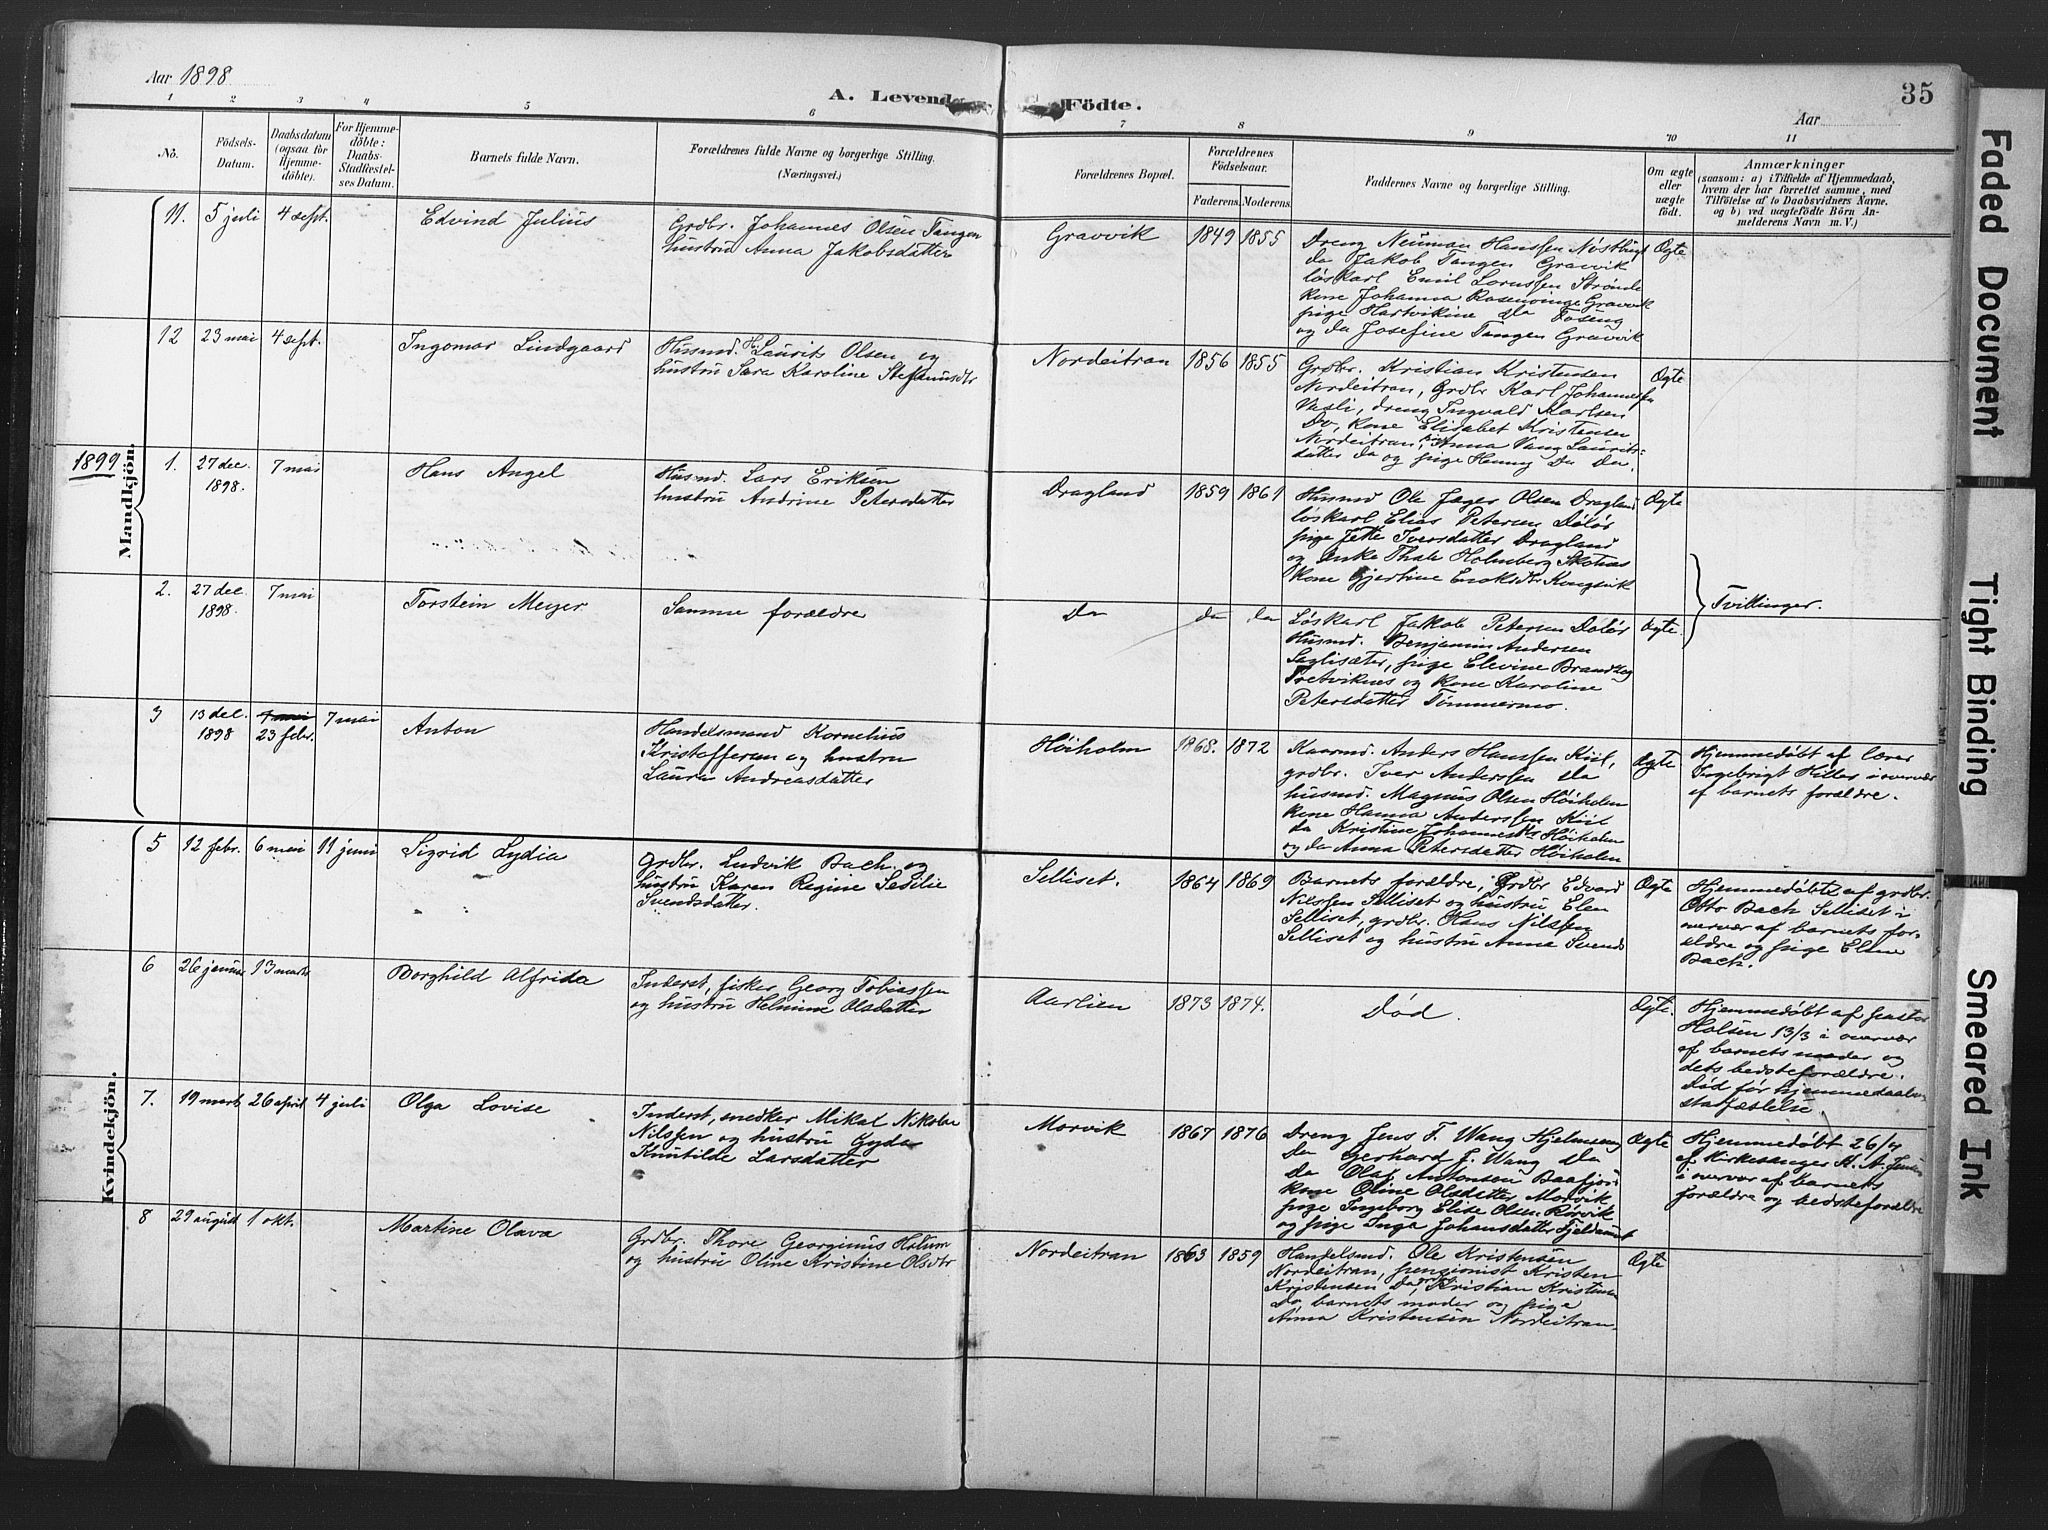 Aar 1898
A. Levende Födte.
35
Aar
1 2 3 4 5 6 7 8 9 10 11
No.
Födsels-
Datum.
Daabsdatum
(ogsaa for
Hjemme-
döbte).
For Hjemme-
döbte:
Daabs-
Stadfæstel-
ses Datum.
Barnets fulde Navn.
Forældrenes fulde Navne og borgerlige Stilling.
(Næringsvei.)
Forældrenes Bopæl.
Forældrenes
Födselsaar.
Faderens. Moderens.
Faddernes Navne og borgerlige Stilling.
Om ægte
eller
uægte
födt.
Anmærkninger
(saasom: a) i Tilfælde af Hjemmedaab,
hvem der har forrettet samme, med
Tilföielse af to Daabsvidners Navne,
og b) ved uægtefödte Börn An-
melderens Navn m. V.)
Mandkjön.
11. 5 juli 4 sept. Edvind Julius
Grdbr. Johannes Olsen Tangen
hustru Anna Jakobsdatter
Gravvik 1849 1855
Dreng Neuman Hanssen
da Jakob Tangen Gravvik
løskarl Emil
kone Johanna Rosenvinge Gravvik
pige Hartvikine da Foseng
og da Josefine Tangen Gravvik
Ægte
12 23 mai 4 sept. Ingomar Lindgaard
Husmd. Laurits Olsen og
hustru Sara Karoline Stefanusdtr
Nordeitran 1856 1855
Grdbr. Kristian Kristensen
Nordeitran, Grdbr Karl Johannessen
Vasli, dreng Ingvald Karlsen
Do, Kone Elisabet Kristensen
Nordeitran, pige Anna Vang Laurits-
datter da og pige Henny Da Da.
Ægte
1899
1. 27 dec. 1898. 7 mai Hans Angel
Husmd. Lars Eriksen
hustru Andrine Petersdatter
Dragland 1859 1861
Husmd Ole Jæger Olsen Dragland
løskarl Elias Petersen Døløs
pige Jette Iversdatter Dragland
og Enke Thale Holmberg Skotnes
Kone Gjertine Enoksdtr Kongsvik
Ægte
2. 27 dec 1898. 7 mai Torstein Meyer
Samme forældre
Da da da
Løskarl Jakob Petersen Døløs
Husmd. Benjamin Andersen
pige Elevine Brandtzæg
og Kone Karoline
Petersdatter Tømmermo.
Ægte.
Tvillinger.
3 13 dec. 1898 7 mai 23 febr. 7 mai Anton
Handelsmand Kornelius
Kristoffersen og hustru
Laura Andreasdatter
Høiholm 1868. 1872
Kaarmd. Anders Hanssen Kiil,
grdbr. Iver Anderssen da
husmd. Magnus Olsen Høiholm
kone Hanna Anderssen Kiil
da Kristine Johannesdtr Høiholm
og da Anna Petersdatter Høiholm
Ægte
Hjemmedøbt af lærer
Ingebrigt Hilles i overvær
af barnets forældre.
Kvindekjön.
5 12 febr. 6 mai 11 juni Sigrid Lydia
Grdbr. Ludvik Bach og
hustru Karen Regine Sesilie
Svendsdatter.
Selliset. 1864 1869
Barnets forældre, Grdbr Edvard
Nilssen Selliset og hustru Elen
Selliset, grdbr. Hans Nilssen
Selliset og hustru Anna Svends
Ægte
Hjemmedøbte af grdbr.
Otto Bach Selliset i
overvær af barnets for-
ældre og pige Elen
Bach.
6 26 januar 13 marts Borghild Alfrida
Inderst, fisker Georg Tobiassen
og hustru Helmine Olsdatter
Aarlien 1873 1874.
Død.
Ægte.
Hjemmedøbt af pastor
Holsen 13/3 i overvær
af barnets moder og
dets bedsteforældre.
Død før hjemmedaabs
stadfæstelse
7. 19 marts 26 april 4 juli Olga Lovise
Inderst, snedker Mikal Nikolai
Nilssen og hustru Gyda
Knutilde Larsdatter
Morvik 1867 1876
Dreng Jens T. Wang Hjelmseng
Da Gerhard J. Wang Da
da Olaf Antonsen
kone Oline Olsdatter Morvik
pige Ingeborg Elise Olsen Rørvik
og pige Inga Johansdatter
Ægte
Hjemmedøbt 26/4
af kirkesanger H. A. Jensen
i overvær af barnets
forældre og bedsteforældre
8 29 august 1 okt. Martine Olava
Grdbr. Thore Georginus
og hustru Oline Kristine Olsdtr
Nordeitran 1863 1859
Handelsmd. Ole Kristensen
Nordeitran, pensionist Kristen
Kristensen Do, Kristian Kristensen
Do barnets moder og pige
Anna Kristensen Nordeitran
Ægte
Faded Document
Tight Binding
Smeared Ink